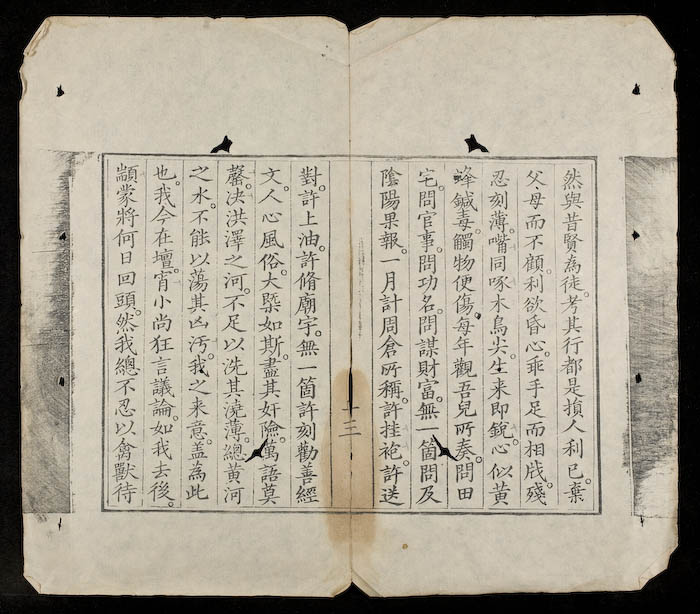 然與昔賢為徒。考其行都是損人利己。棄
父母而不顧。利欲昏心。乖手足而相戕。殘
忍刻薄。嘴同啄木鳥尖。生来即銳。心似黃
蜂鍼毒。觸物便傷。每年觀吾兒所奏。問田
宅。問官事。問功名。問謀財富。無一箇問及
陰陽果報。一月計周倉所稱。許挂袍。許送
十三
對。許上油。許脩廟宇。無一箇許刻勸善經
文。人心風俗。大槩如斯。盡其奸險。萬語莫
罄。決洪澤之河。不足以洗其澆薄。總黃河
之水。不能以蕩其凶汚。我之来意。蓋為此
也。我今在壇。宵小尚狂言議論。如我去後。
顓蒙將何日回頭。然我總不忍以禽獸待